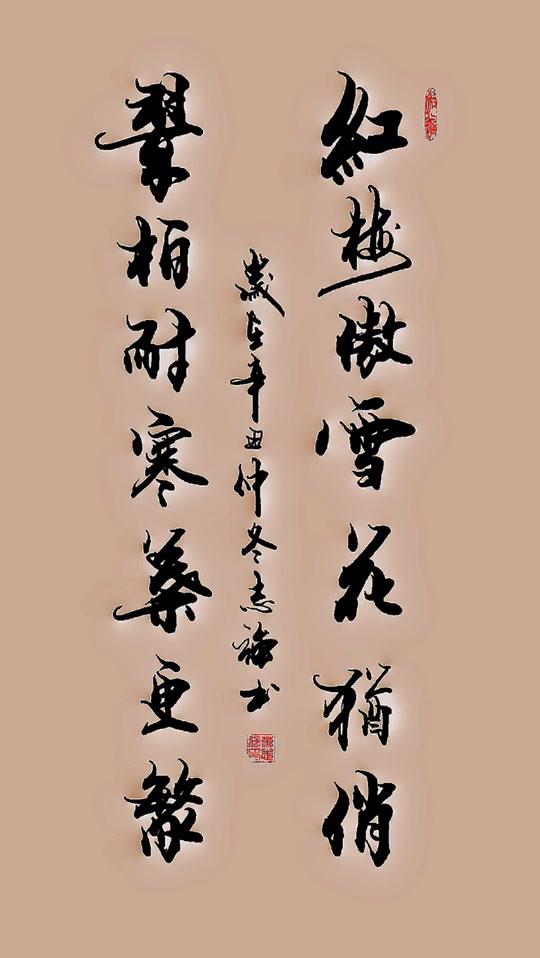 紅梅傲雪花猶俏
翠柏耐寒葉更繁
歲在辛丑仲冬志书